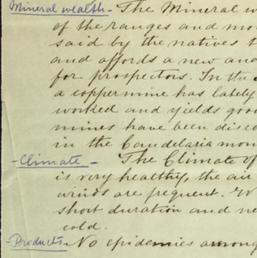 Mineral wealth - The Mineral w
of the ranges and mo
said by the natives t
and affords a new and
for prospectors. In the
a copper mine has lately
worked and yields goo
mines have been disco
in the Candelaria mon
- Climate - The Climate of
is very healthy, the air
winds are frequent. W
short duration and ne
cold.
- Products - No epidemics among